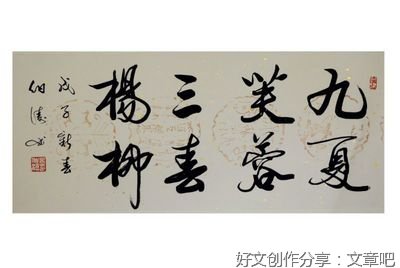 九夏
芙蓉
三春
楊柳
戊子新春
伯涛书
好文创作分享：文章吧